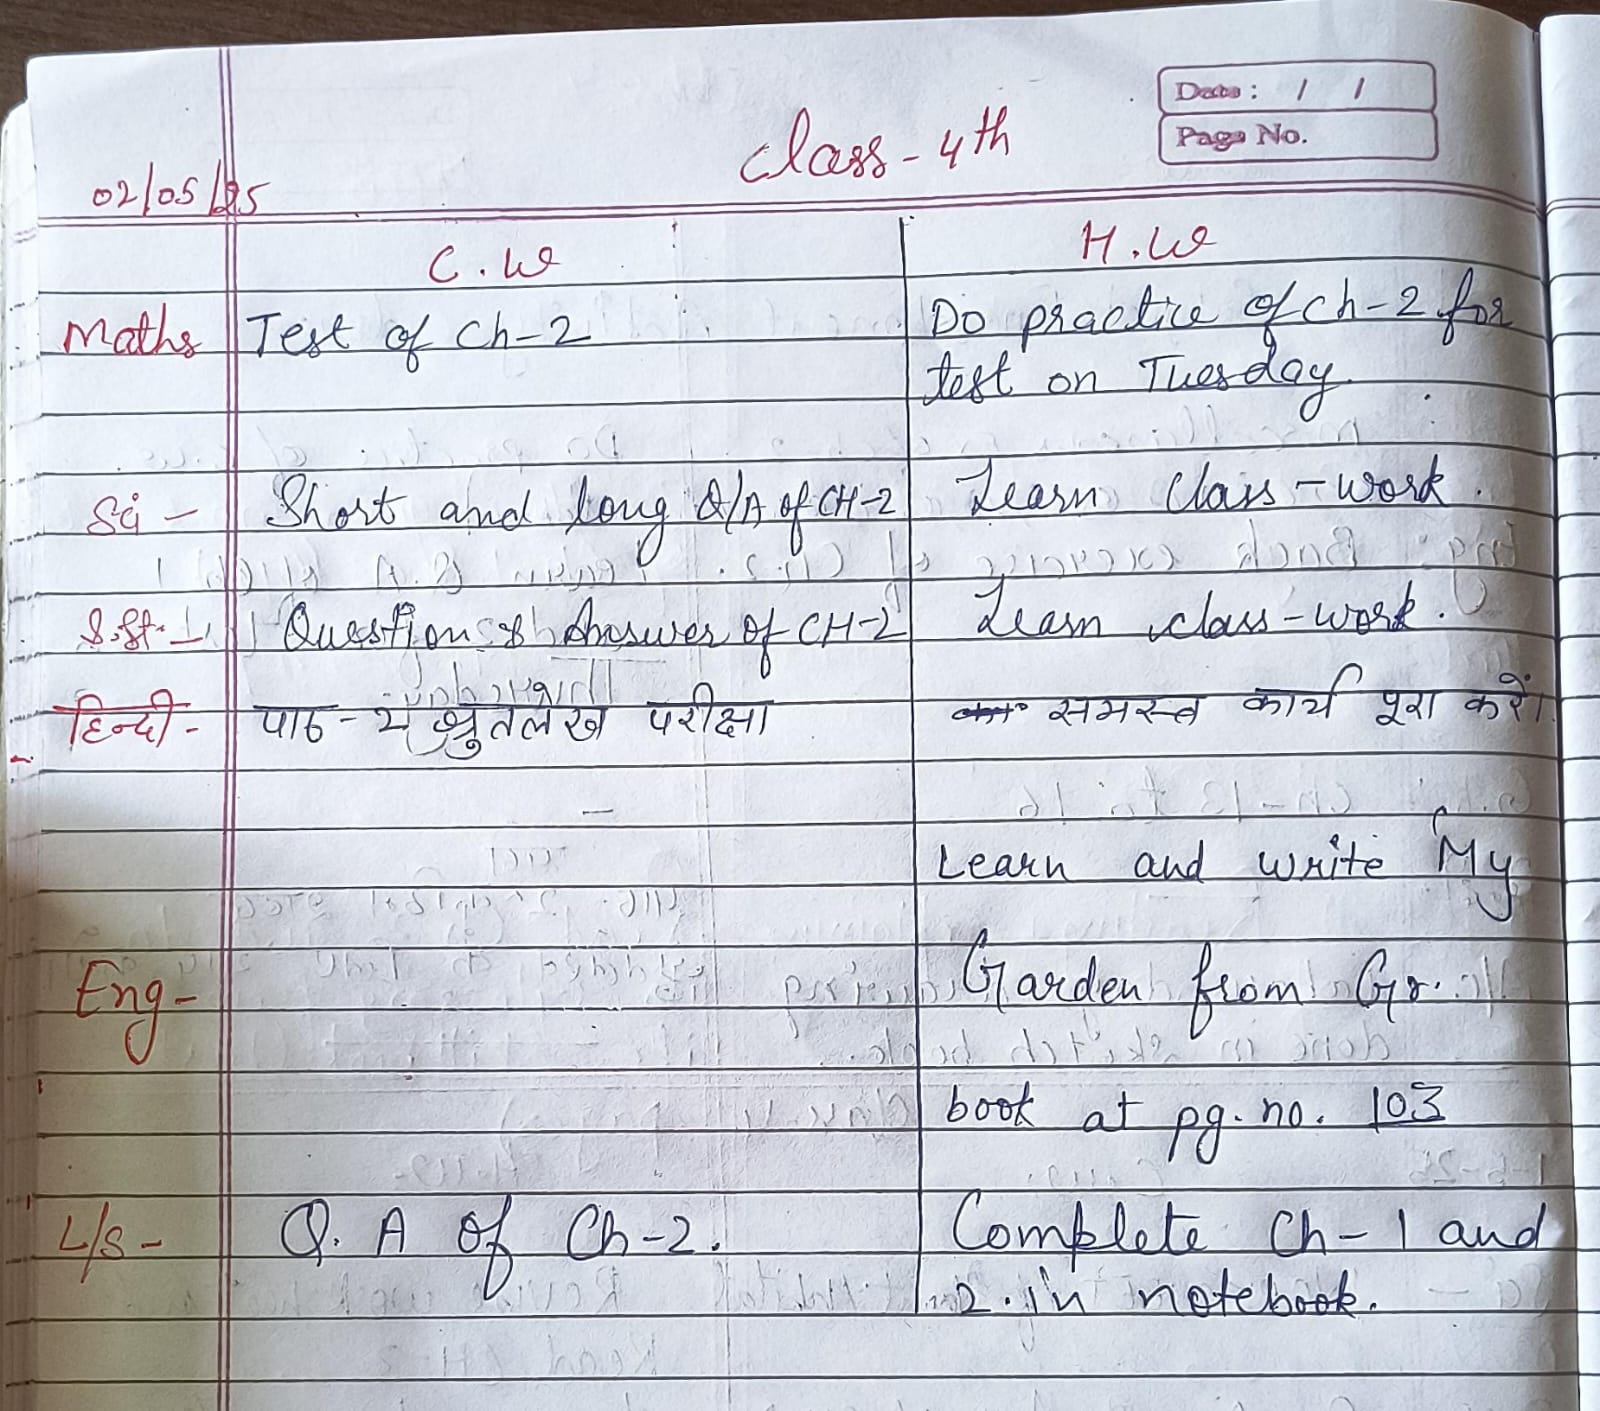 Date : / /
Page No.
Class - 4th
02/05/25
C.W
H.W
Maths
Test of Ch-2
Do practice of Ch-2 for
test on Tuesday.
Sci -
Short and long Q/A of CH-2
Learn Class-work.
S.St. -
Question & Answer of CH-2
Learn class-work.
हिन्दी -
पाठ - 2 श्रुतलेख परीक्षा
समस्त कार्य पूरा करें।
Learn and write My
Eng -
Garden from Gr.
book at pg. no. 103
L/S -
Q. A of Ch-2.
Complete Ch-1 and
2. in notebook.